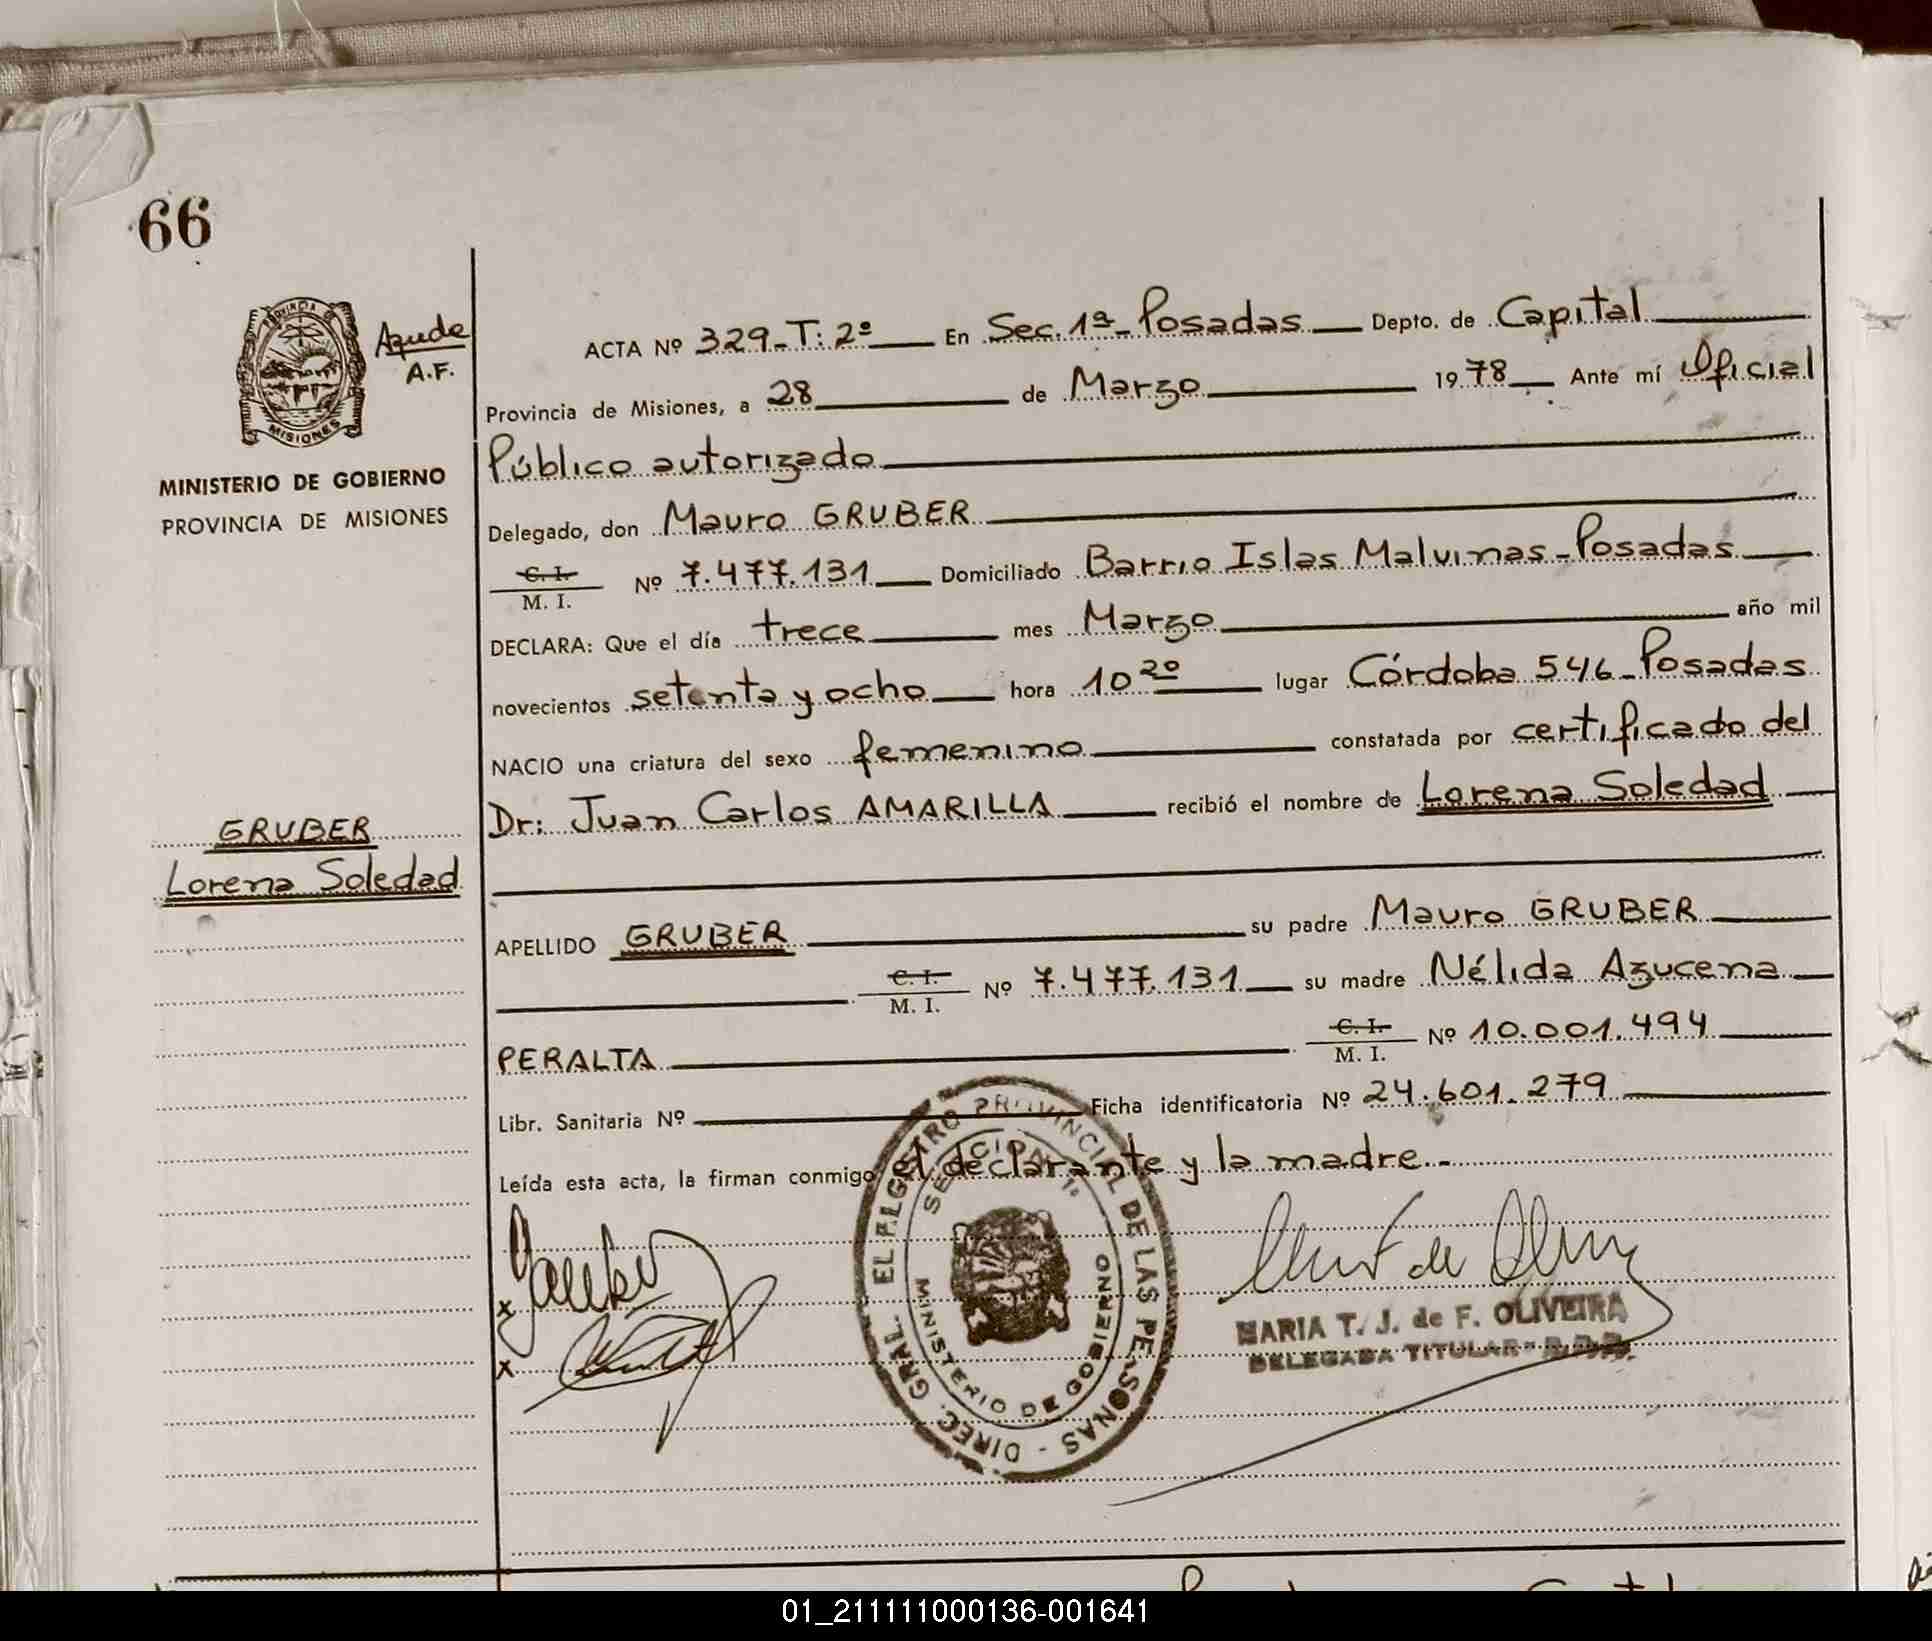 66
PROVINCIA DE
MISIONES
A.F.
MINISTERIO DE GOBIERNO
PROVINCIA DE MISIONES
GRUBER
Lorena Soledad
ACTA Nº 329-T: 2º En Sec. 1ª - Posadas Depto. de Capital
Provincia de Misiones, a 28 de Marzo 1978 Ante mí Oficial
Público autorizado
Delegado, don Mauro GRUBER
C. I.
M. I. Nº 7.477.131 Domiciliado Barrio Islas Malvinas - Posadas
DECLARA: Que el día trece mes Marzo año mil
novecientos setenta y ocho hora 10 20 lugar Córdoba 546 - Posadas
NACIO una criatura del sexo femenino constatada por certificado del
Dr: Juan Carlos AMARILLA recibió el nombre de Lorena Soledad
APELLIDO GRUBER su padre Mauro GRUBER
C. I.
M. I. Nº 7.477.131 su madre Nélida Azucena
PERALTA C. I.
M. I. Nº 10.001.494
Libr. Sanitaria Nº Ficha identificatoria Nº 24.601.279
Leída esta acta, la firman conmigo el declarante y la madre.-
DIREC. GRAL. EL REGISTRO PROVINCIAL DE LAS PERSONAS -
SECCION 1ª
MINISTERIO DE GOBIERNO
x
x
MARIA T. J. de F. OLIVEIRA
DELEGADA TITULAR
01_211111000136-001641